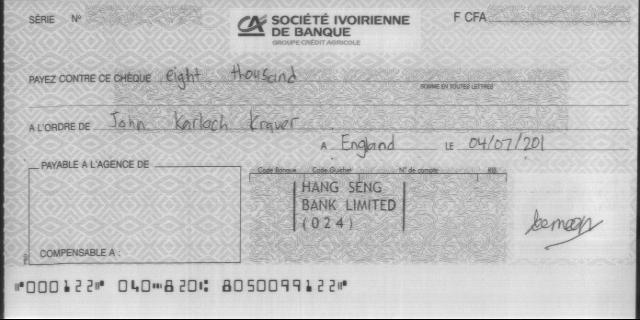 SÉRIE N° CA SOCIÉTÉ IVOIRIENNE F CFA
DE BANQUE
GROUPE CRÉDIT AGRICOLE
PAYEZ CONTRE CE CHÈQUE eight thousand
SOMME EN TOUTES LETTRES
A L'ORDRE DE John Karloch Kraver
A England LE 04/07/201
PAYABLE A L'AGENCE DE
Code Banque Code Guichet N° de compte RIB
HANG SENG
BANK LIMITED
(024)
COMPENSABLE A :
⑈000122⑈ 040⑉820⑆ 8050099122⑈